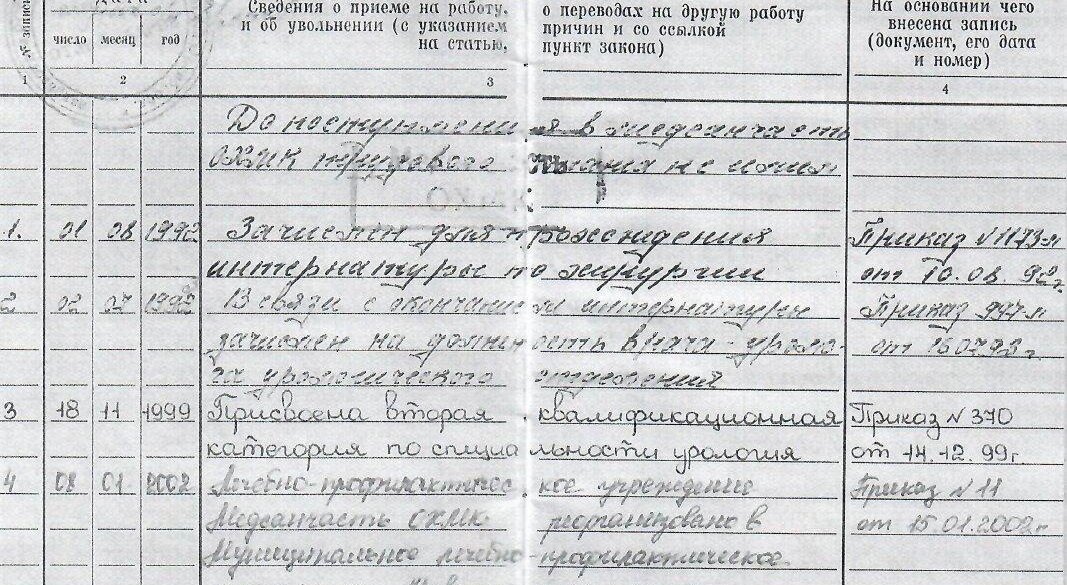 № записи
Дата
число месяц год
Сведения о приеме на работу, о переводах на другую работу
и об увольнении (с указанием причин и со ссылкой
на статью, пункт закона)
На основании чего
внесена запись
(документ, его дата
и номер)
1 2 3 4
До поступления в медсанчасть
ОХМК трудового стажа не имел
ОХМК
1. 01 08 1992 Зачислен для прохождения Приказ №1173-л
интернатуры по хирургии от 10.08.92г.
2 02 07 1992 В связи с окончанием интернатуры Приказ 997-л
зачислен на должность врача-уроло- от 15.07.93г.
га урологического отделения
3 18 11 1999 Присвоена вторая квалификационная Приказ №370
категория по специальности урология от 14.12.99г
4 08 01 2002 Лечебно-профилактическое учреждение Приказ №11
Медсанчасть ОХМК реорганизовано в от 15.01.2002г
Муниципальное лечебно-профилактическое